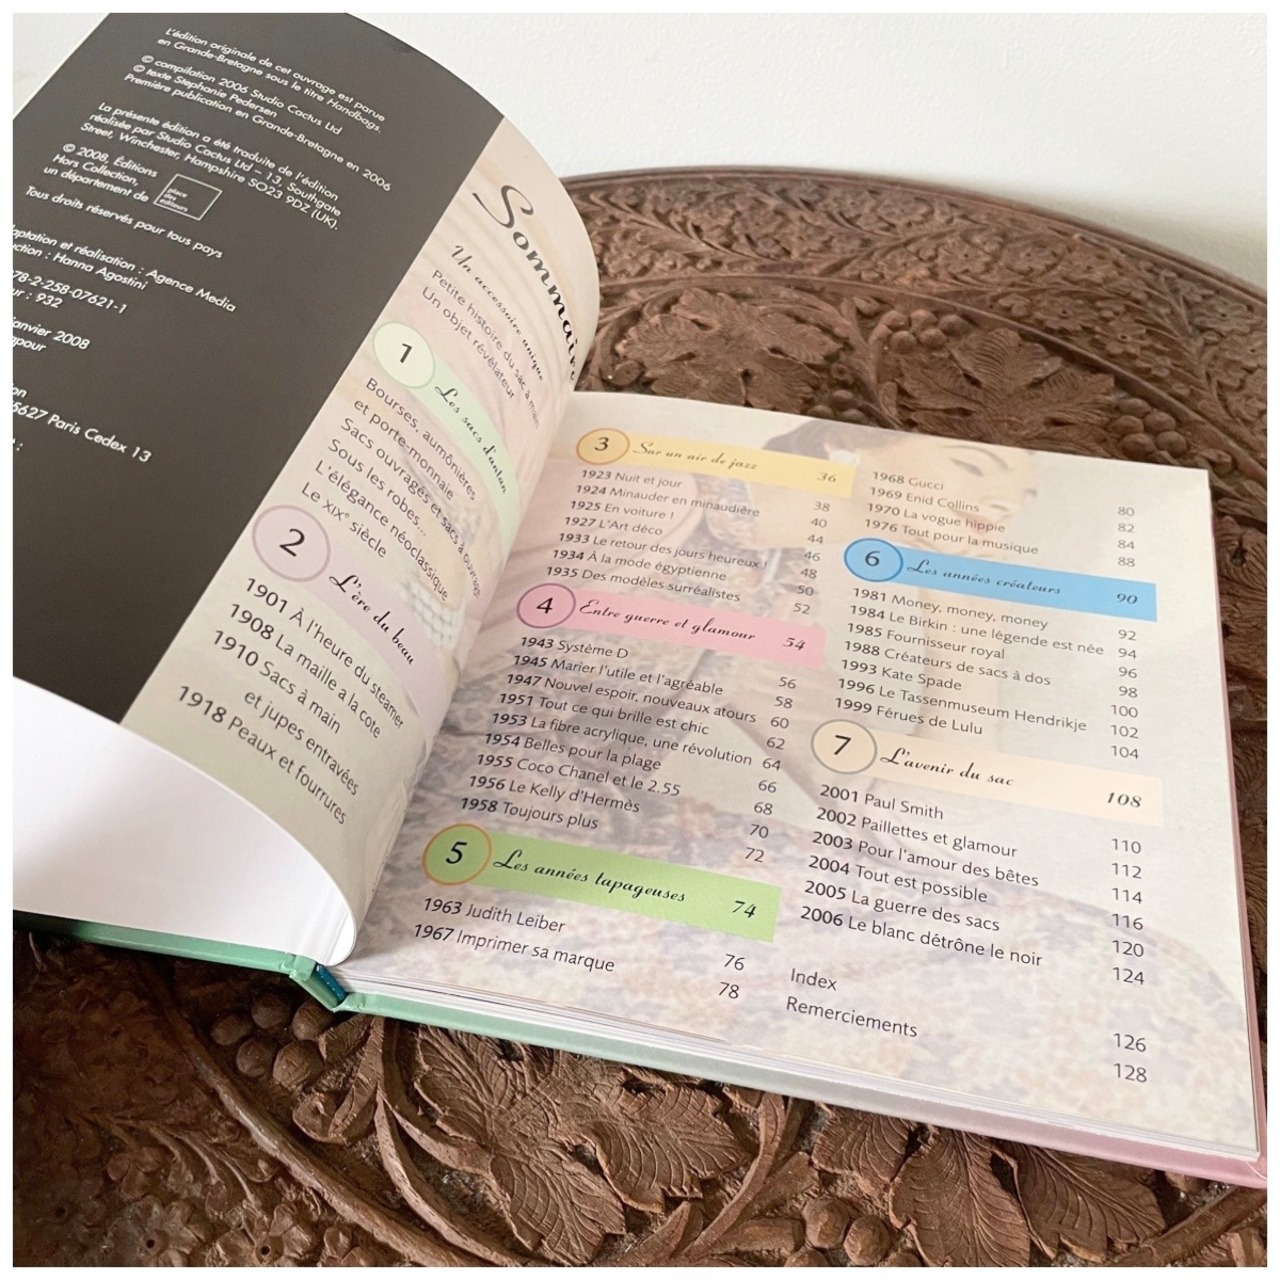 L'édition originale de cet ouvrage est parue
en Grande-Bretagne sous le titre Handbags.
© compilation 2006 Studio Cactus Ltd
© texte Stephanie Pedersen
Première publication en Grande-Bretagne en 2006
La présente édition a été traduite de l'édition
réalisée par Studio Cactus Ltd – 13, Southgate
Street, Winchester, Hampshire SO23 9DZ (UK).
© 2008, Éditions
Hors Collection,
un département de
place
des
éditeurs
Tous droits réservés pour tous pays
aptation et réalisation : Agence Media
uction : Hanna Agostini
78-2-258-07621-1
ur : 932
anvier 2008
apour
on
5627 Paris Cedex 13
:
Sommaire
Un accessoire unique
Petite histoire du sac à main
Un objet révélateur
1 Les sacs d'antan
Bourses, aumônières
et porte-monnaie
Sacs ouvragés et sacs à ouvrage
Sous les robes...
L'élégance néoclassique
Le XIXe siècle
2 L'ère du beau
1901 À l'heure du steamer
1908 La maille a la cote
1910 Sacs à main
et jupes entravées
1918 Peaux et fourrures
3 Sur un air de jazz 36
1923 Nuit et jour 38
1924 Minauder en minaudière 40
1925 En voiture ! 44
1927 L'Art déco 46
1933 Le retour des jours heureux ! 48
1934 À la mode égyptienne 50
1935 Des modèles surréalistes 52
4 Entre guerre et glamour 54
1943 Système D 56
1945 Marier l'utile et l'agréable 58
1947 Nouvel espoir, nouveaux atours 60
1951 Tout ce qui brille est chic 62
1953 La fibre acrylique, une révolution 64
1954 Belles pour la plage 66
1955 Coco Chanel et le 2.55 68
1956 Le Kelly d'Hermès 70
1958 Toujours plus 72
5 Les années tapageuses 74
1963 Judith Leiber 76
1967 Imprimer sa marque 78
1968 Gucci 80
1969 Enid Collins 82
1970 La vogue hippie 84
1976 Tout pour la musique 88
6 Les années créateurs 90
1981 Money, money, money 92
1984 Le Birkin : une légende est née 94
1985 Fournisseur royal 96
1988 Créateurs de sacs à dos 98
1993 Kate Spade 100
1996 Le Tassenmuseum Hendrikje 102
1999 Férues de Lulu 104
7 L'avenir du sac 108
2001 Paul Smith 110
2002 Paillettes et glamour 112
2003 Pour l'amour des bêtes 114
2004 Tout est possible 116
2005 La guerre des sacs 120
2006 Le blanc détrône le noir 124
Index 126
Remerciements 128